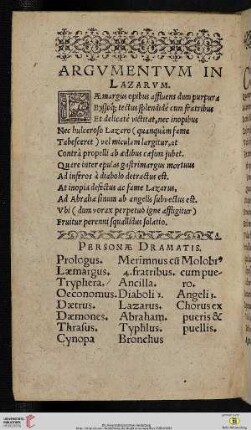 ARGVMENTVM IN
LAZARVM.
LÆmargus opibus affluens dum purpura
Byssoq; tectus splendidè cum fratribus
Et delicatè victitat, nec inopibus
Nec hulceroso Lazaro (quanquàm fame
Tabesceret) vel miculam largitur, at
Contrà propelli ab ædibus cæsum jubet.
Quare inter epulas gastrimargus mortuus
Ad inferos à diabolo detractus est.
At inopia defectus ac fame Lazarus,
Ad Abrahæ sinum ab angelis subvectus est.
Vbi (dum vorax perpetuò igne affligitur)
Fruitur perenni squallidus solatio.
PERSONÆ DRAMATIS.
Prologus. Merimnus cū Molobro
Læmargus. 4. fratribus. cum pue-
Tryphera. Ancilla. ro.
Oeconomus. Diaboli 2. Angeli 3.
Dætrus. Lazarus. Chorus ex
Dæmones. Abraham. pueris &
Thrasus. Typhlus. puellis.
Cynopa Bronchus